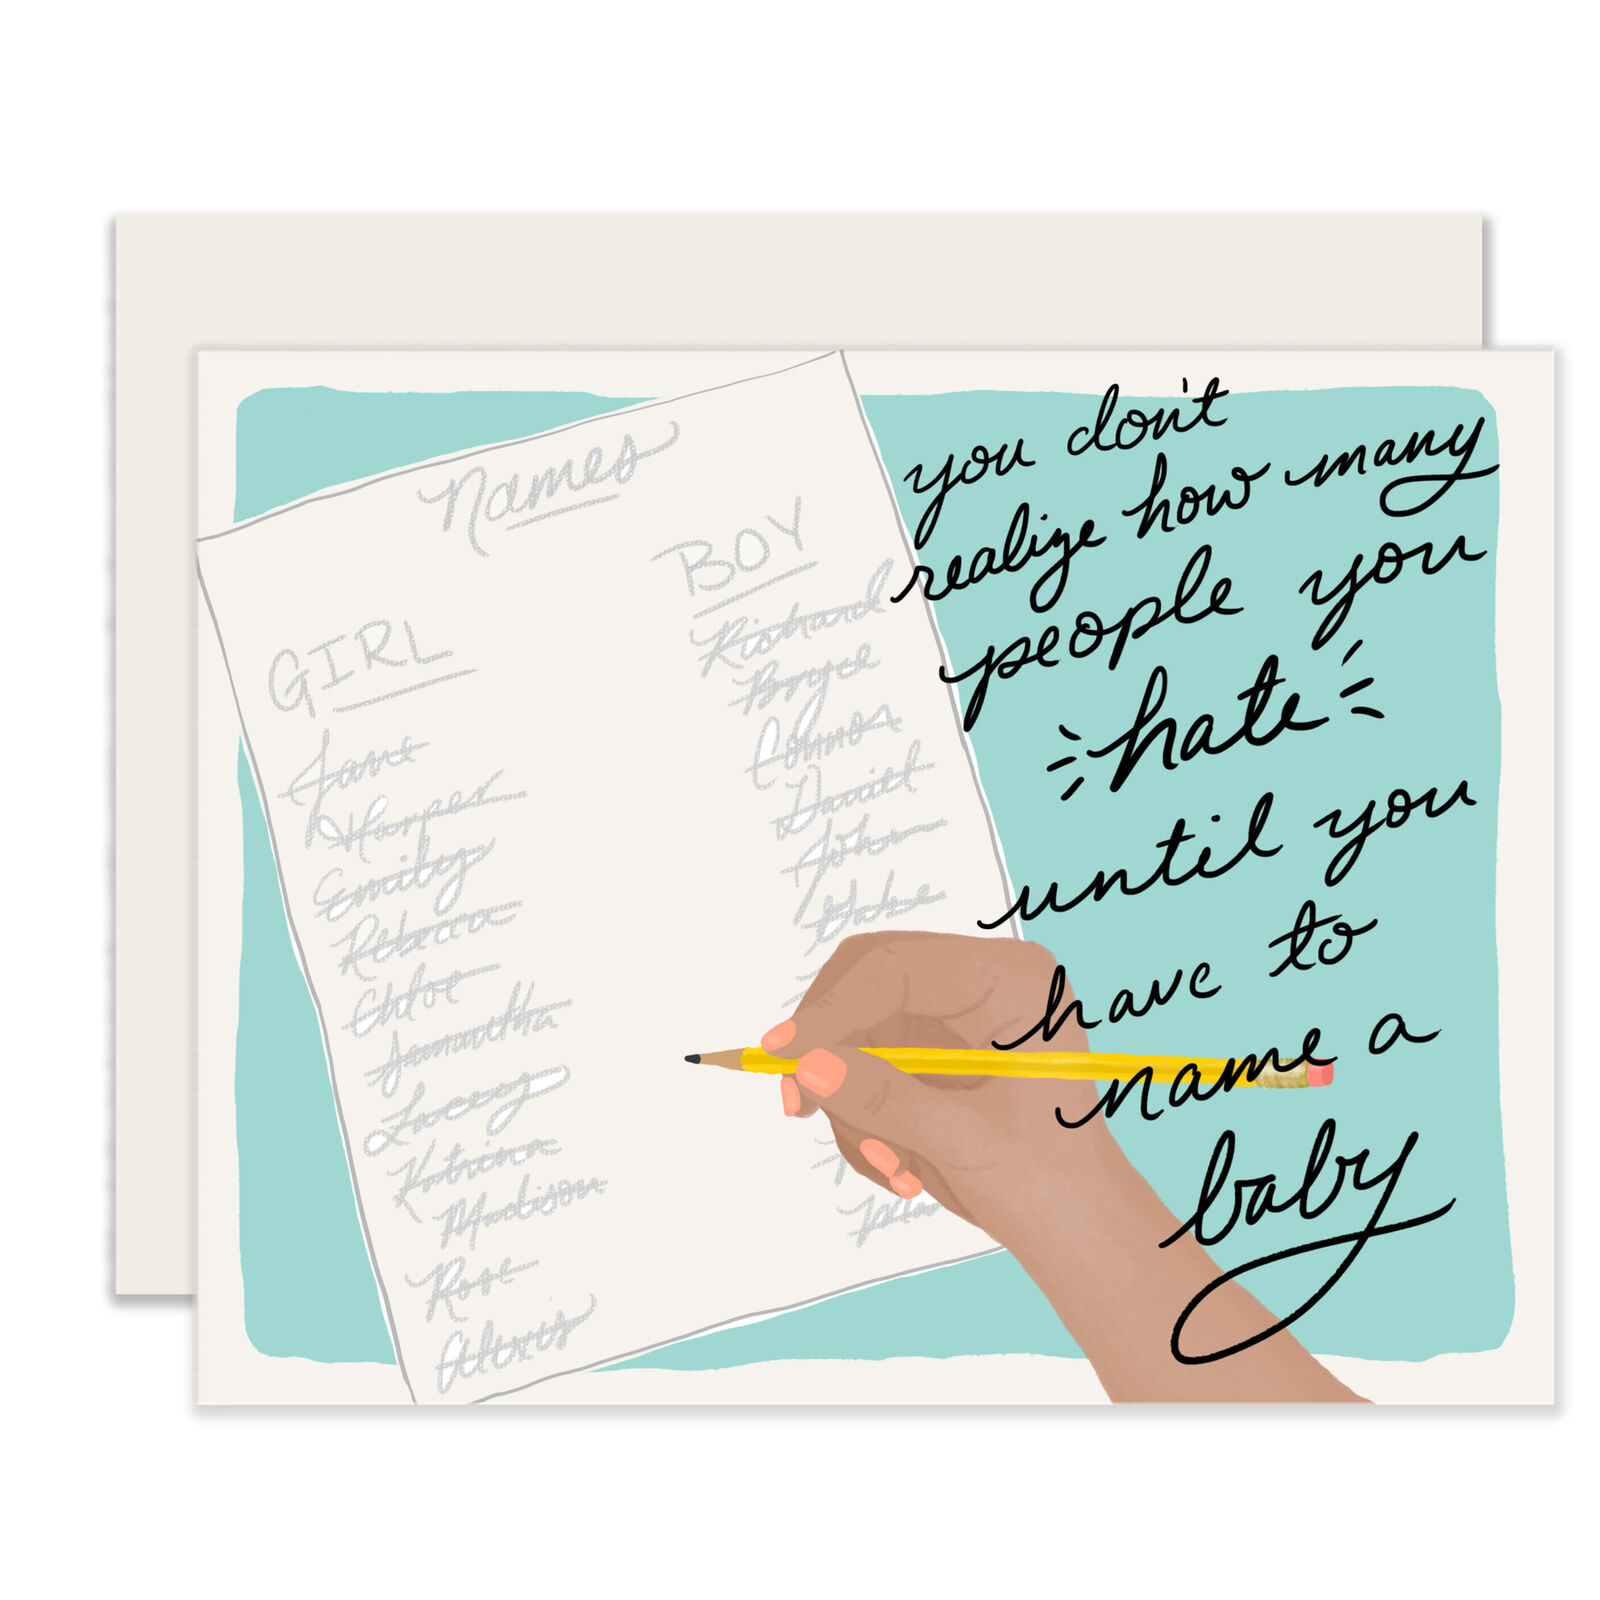 Names
GIRL
Jane
Harper
Emily
Rebecca
Chloe
Samantha
Lucy
Katrina
Madison
Rose
Alexis
BOY
Richard
Bryce
Connor
Daniel
John
Gabe
you don't
realize how many
people you
hate
until you
have to
name a
baby